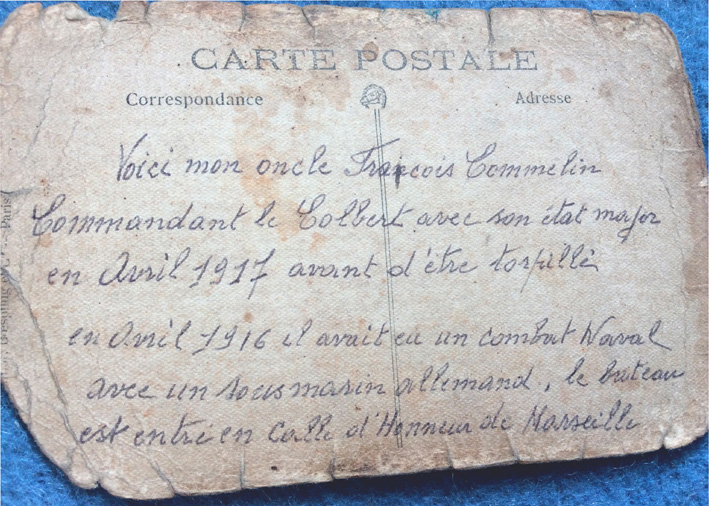 CARTE POSTALE
Correspondance
Adresse
Voici mon oncle François Commelin
Commandant le Colbert avec son état major
en Avril 1917 avant d'être torpillé
en Avril 1916 il avait eu un combat Naval
avec un sous marin allemand, le bateau
est entré en Calle d'Honneur de Marseille
Paris